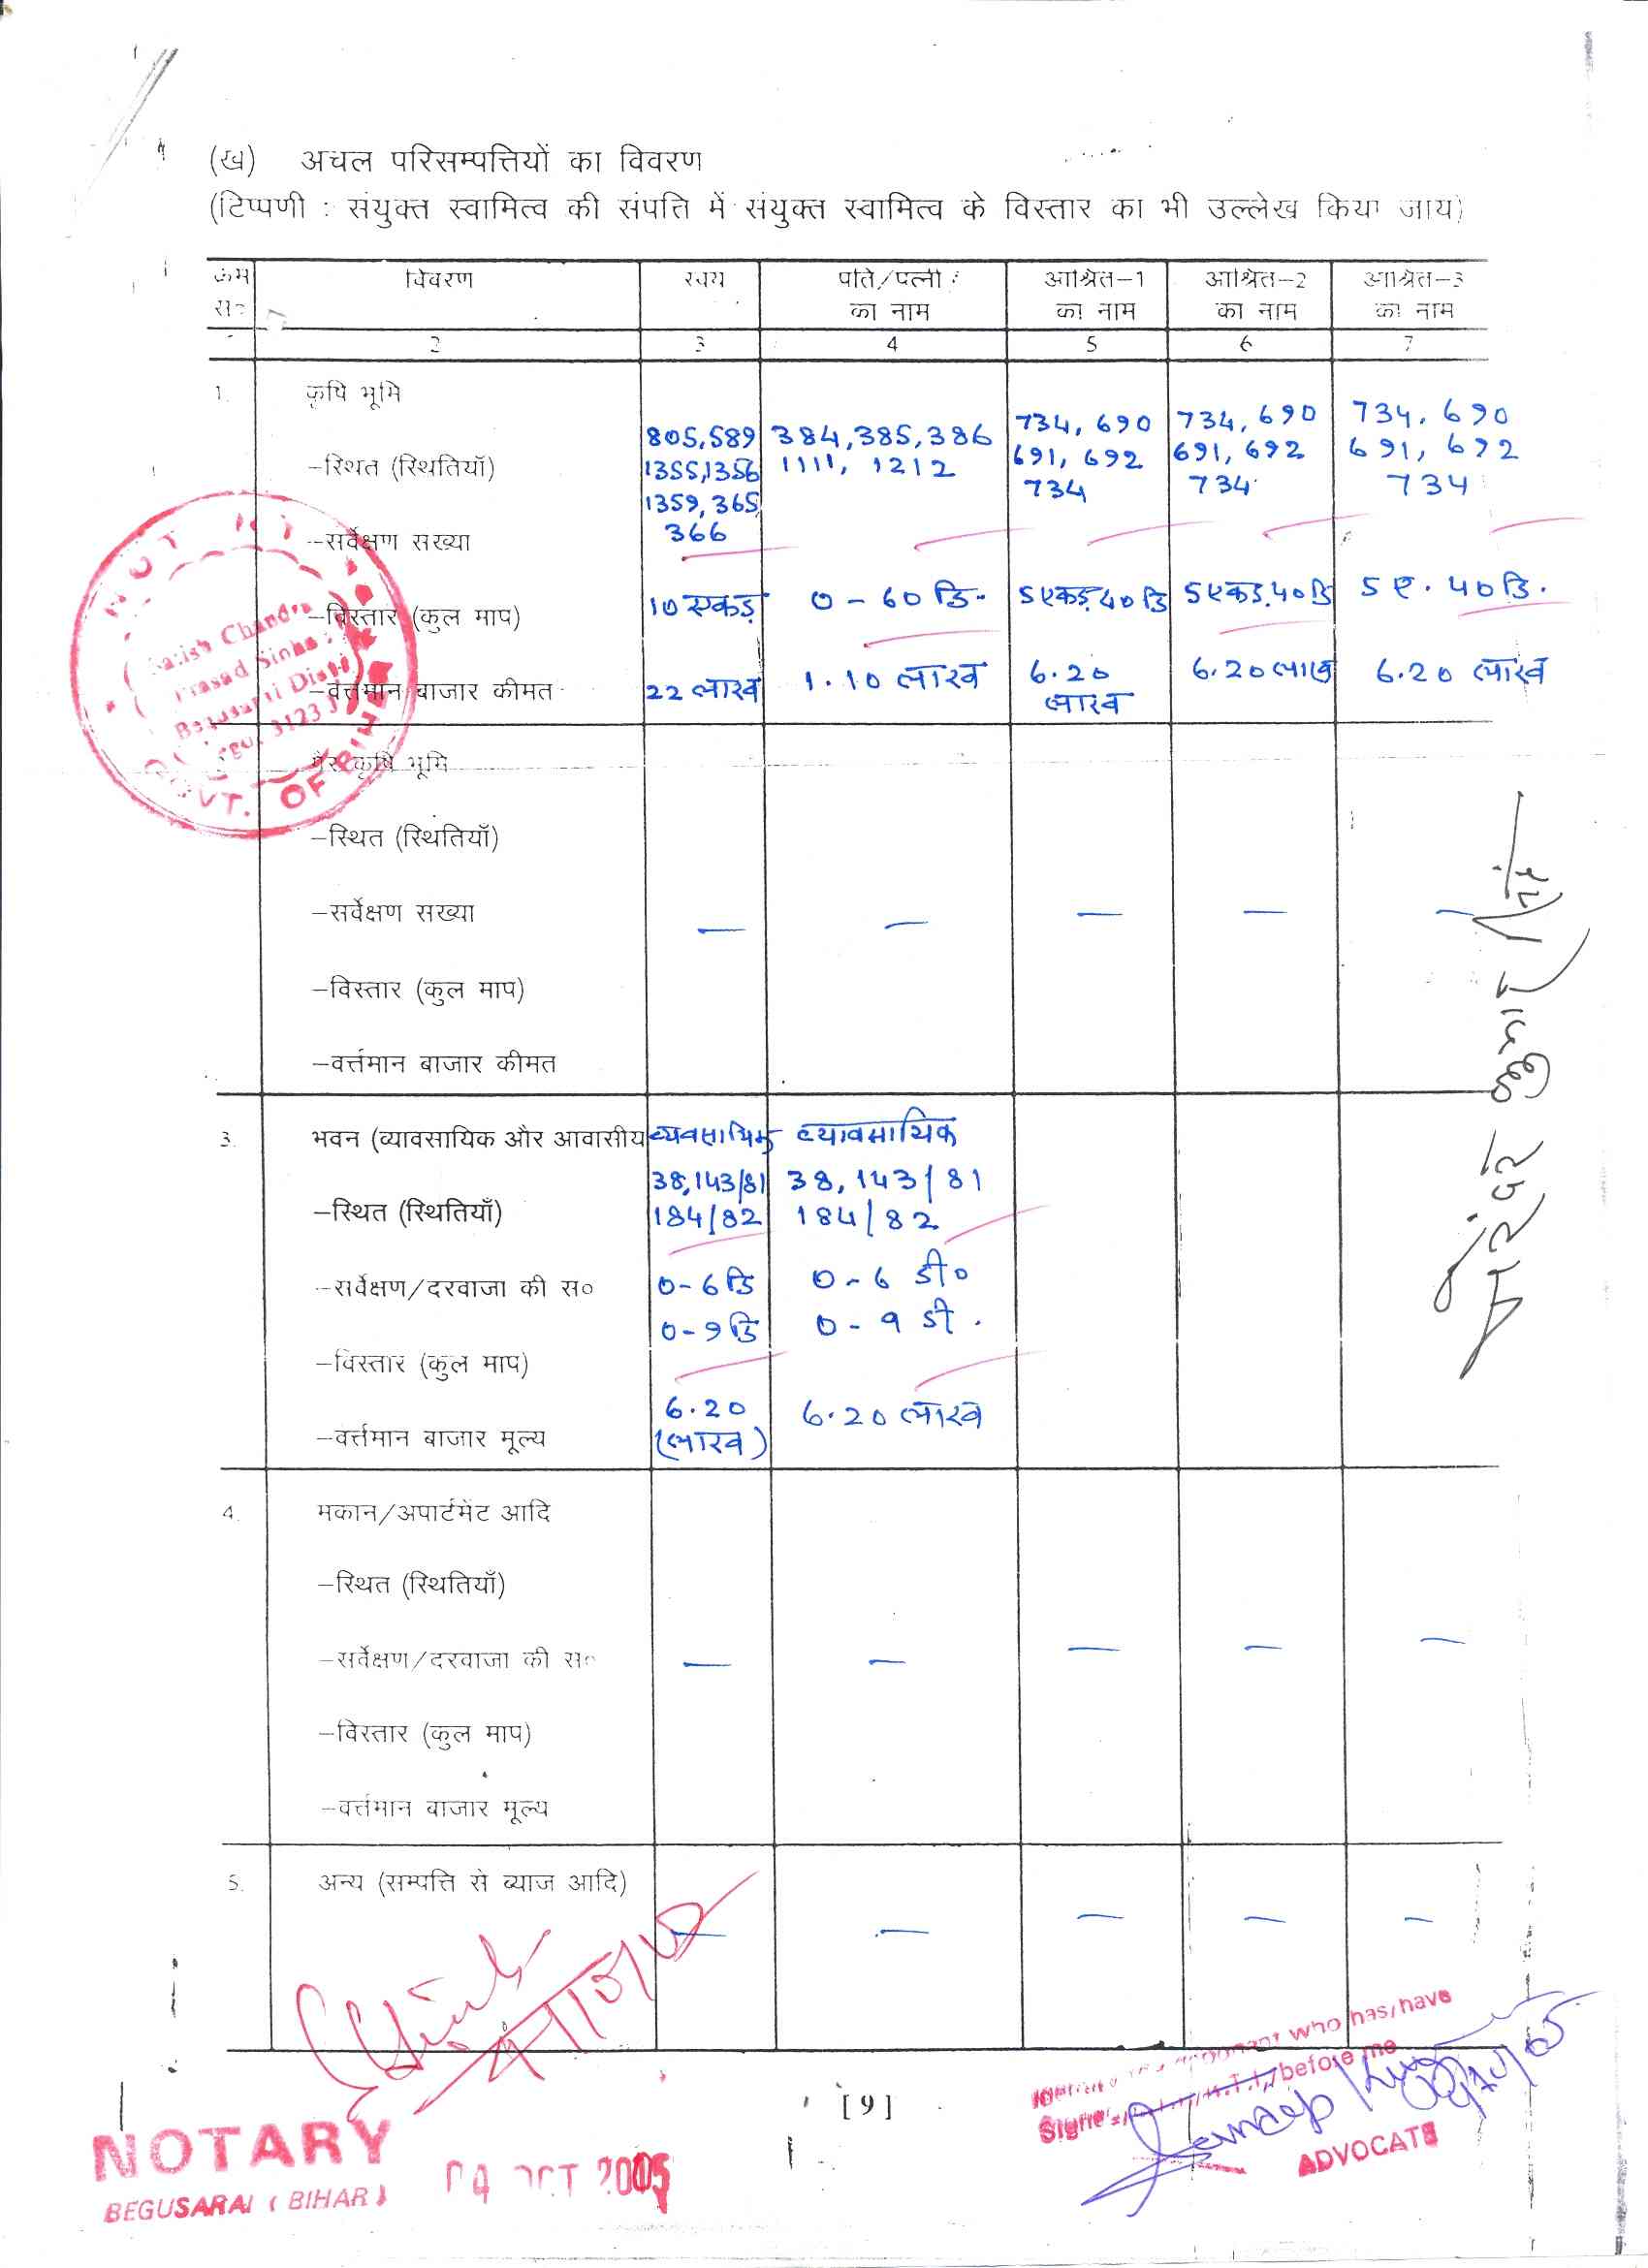 (ख) अचल परिसम्पत्तियों का विवरण
(टिप्पणी : संयुक्त स्वामित्व की संपति में संयुक्त स्वामित्व के विस्तार का भी उल्लेख किया जाय)
क्रम सं० विवरण स्वयं पति/पत्नी का नाम आश्रित-1 का नाम आश्रित-2 का नाम आश्रित-3 का नाम
2 3 4 5 6 7
1. कृषि भूमि
-स्थित (स्थितियाँ) 805,589 384,385,386 734, 690 734, 690 734, 690
1355,1356 1111, 1212 691, 692 691, 692 691, 692
1359, 365 734 734 734
-सर्वेक्षण सख्या 366
-विस्तार (कुल माप) 10 एकड़ 0-60 डि. 5 एकड़ 40 डि 5 एकड़.40 डि 5 ए. 40 डि.
-वर्त्तमान बाजार कीमत 22 लाख 1.10 लाख 6.20 लाख 6.20 लाख 6.20 लाख
गैर कृषि भूमि
-स्थित (स्थितियाँ)
-सर्वेक्षण सख्या — — — — —
-विस्तार (कुल माप)
-वर्त्तमान बाजार कीमत
3. भवन (व्यावसायिक और आवासीय व्यवसायिक व्यावसायिक
-स्थित (स्थितियाँ) 38,143/81 38, 143/81
184/82 184/82
-सर्वेक्षण/दरवाजा की स० 0-6 डि 0-6 डी०
0-9 डि 0-9 डी.
-विस्तार (कुल माप)
-वर्त्तमान बाजार मूल्य 6.20 (लाख) 6.20 लाख
4. मकान/अपार्टमेंट आदि
-स्थित (स्थितियाँ)
-सर्वेक्षण/दरवाजा की स० — — — — —
-विस्तार (कुल माप)
-वर्त्तमान बाजार मूल्य
5. अन्य (सम्पत्ति से ब्याज आदि)
— — — — —
[9]
Satish Chandra
Prasad Sinha
Begusarai Distt
GOVT. OF BIHAR
who has/have
before me
ADVOCATE
NOTARY
BEGUSARAI (BIHAR)
04 OCT 2005